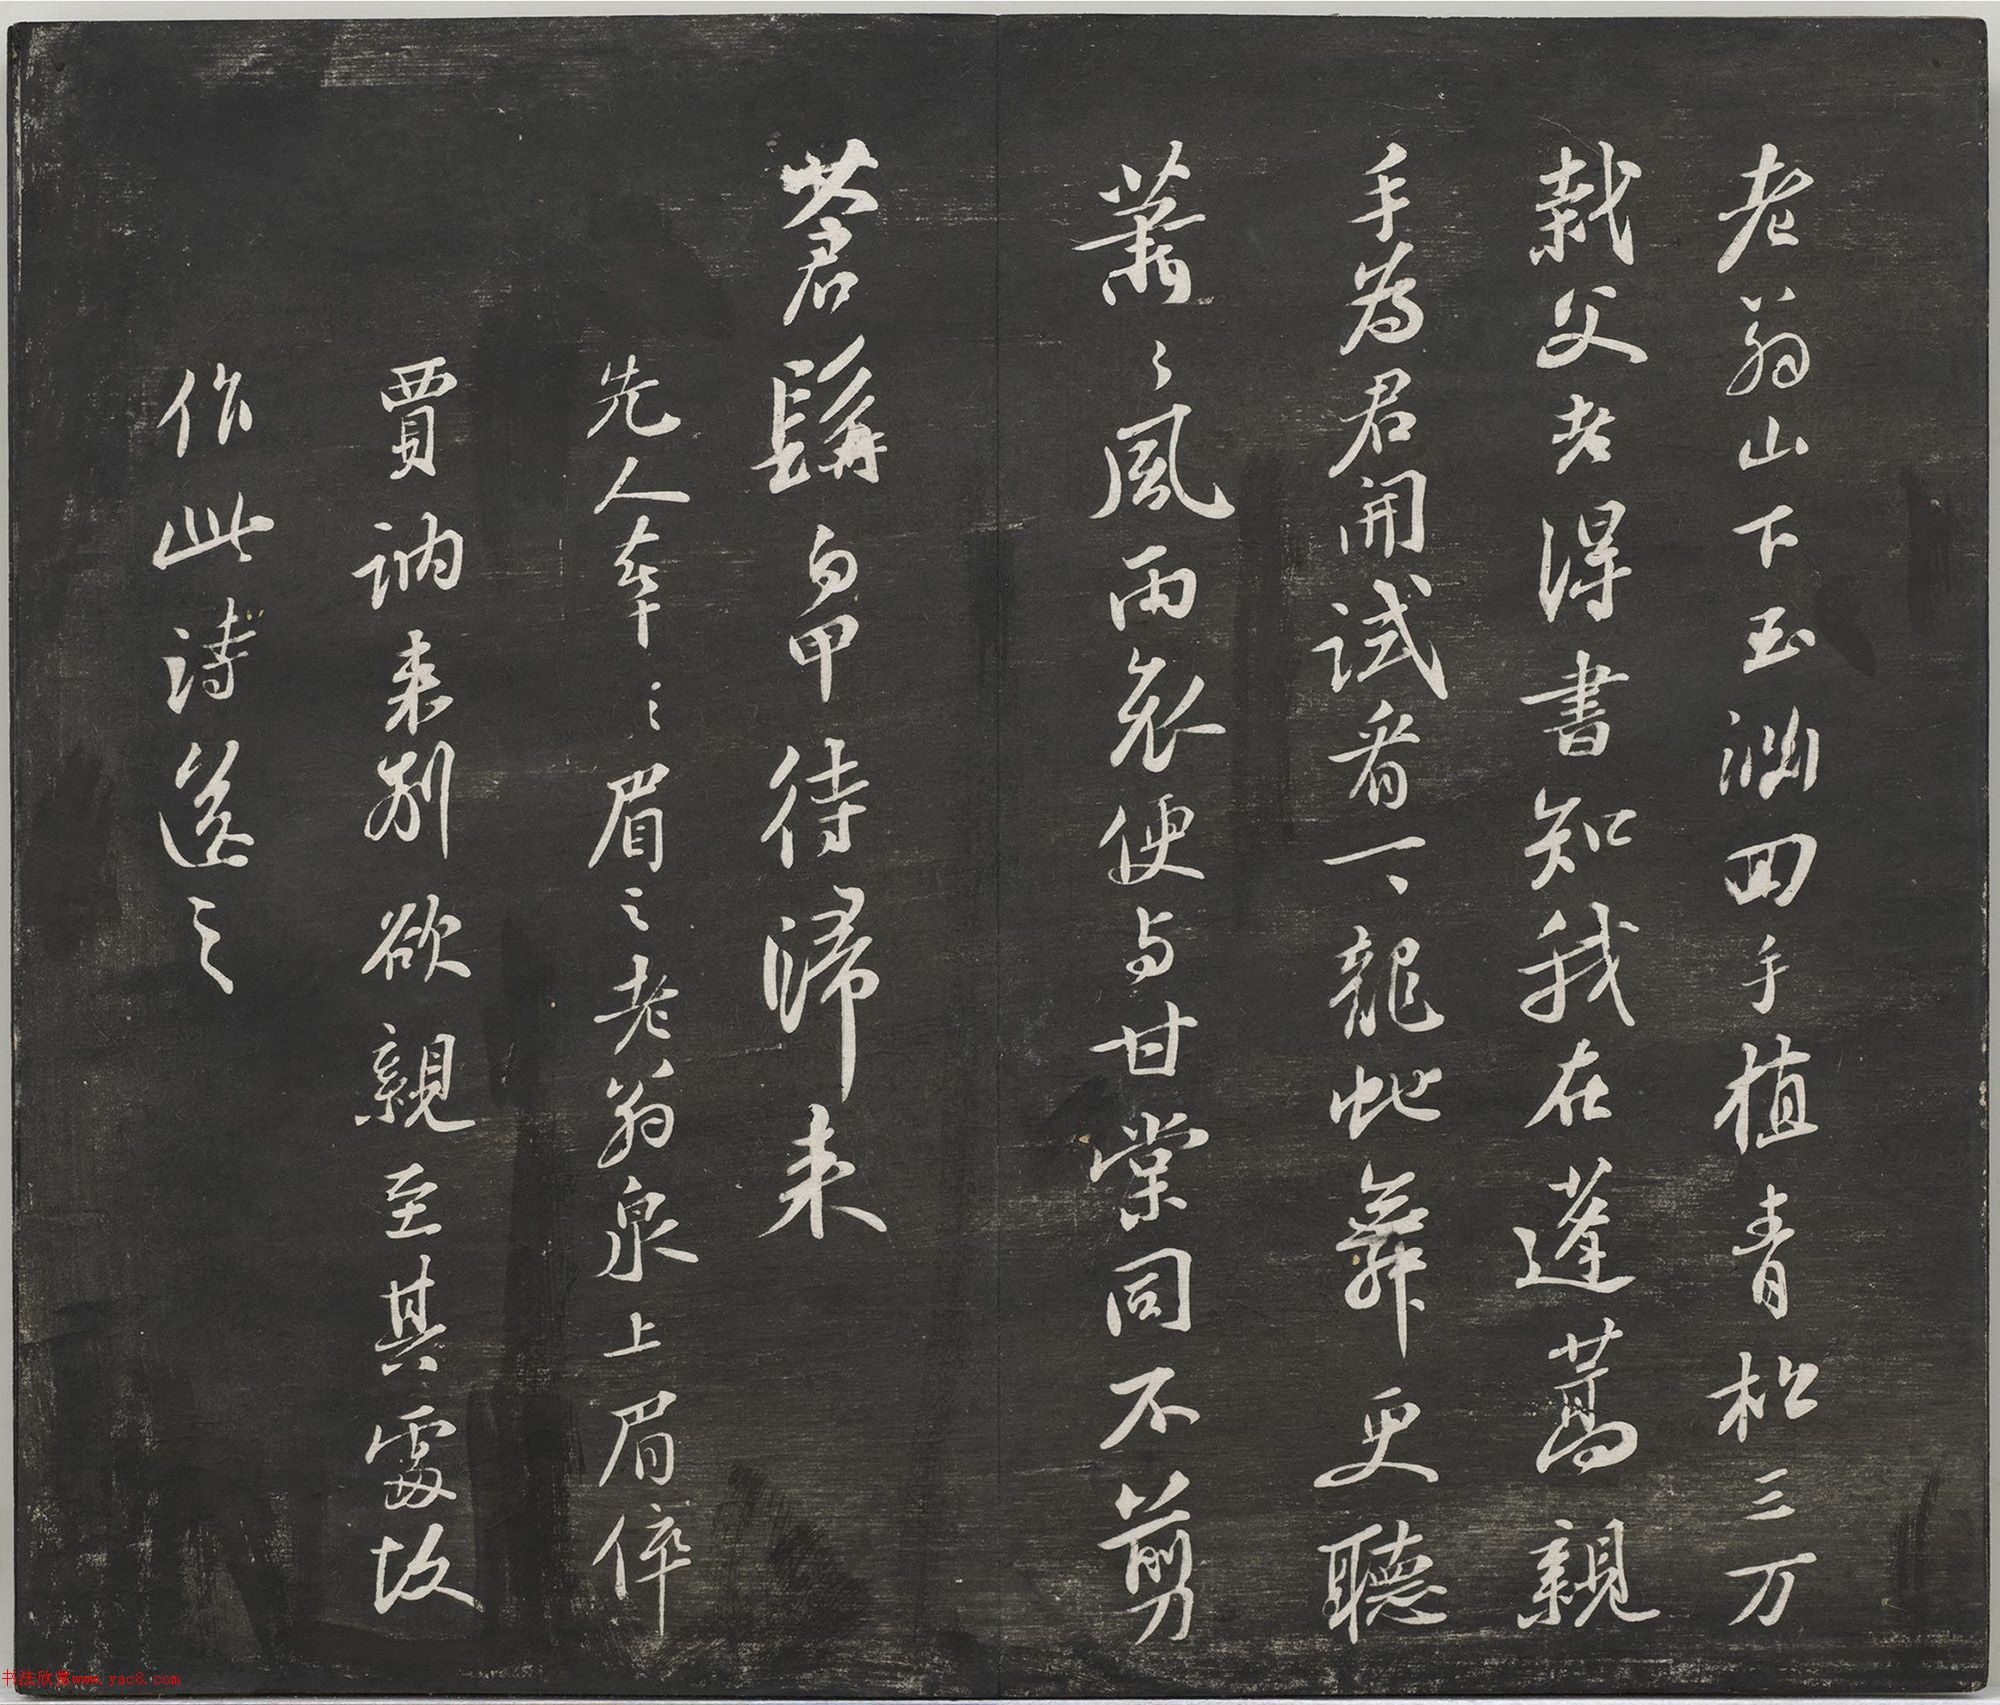 老翁山下玉淵回手植青松三万
栽父老得書知我在蓬蒿親
手為君開試看一一龍虵舞更聽
蕭々風雨哀便与甘棠同不剪
蒼髯白甲待歸来
先人葬眉之老翁泉上眉倅
賈訥来別欲親至其處故
作此詩送之
书法欣赏www.yac8.com